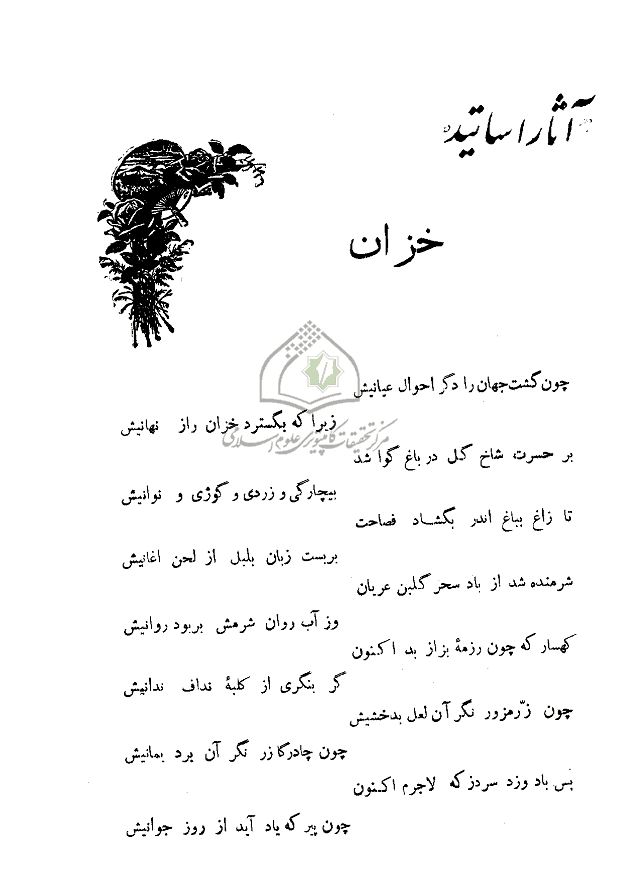 آثار اساتید
خزان
چون گشت جهان را دگر احوال عیانیش
زیرا که بگسترد خزان راز نهانیش
بر حسرت شاخ گل در باغ گوا شد
بیچارگی و زردی و کوژی و نوانیش
تا زاغ بباغ اندر بگشاد فصاحت
بربست زبان بلبل از لحن اغانیش
شرمنده شد از باد سحر گلبن عریان
وز آب روان شرمش بربود روانیش
کهسار که چون رزمهٔ بزاز بد اکنون
گر بنگری از کلبهٔ نداف ندانیش
چون زرّ مزور نگر آن لعل بدخشیش
چون چادر گازر نگر آن برد یمانیش
بس باد وزد سرد ز که لاجرم اکنون
چون پیر که یاد آید از روز جوانیش
مرکز تحقیقات کامپیوتری علوم اسلامی